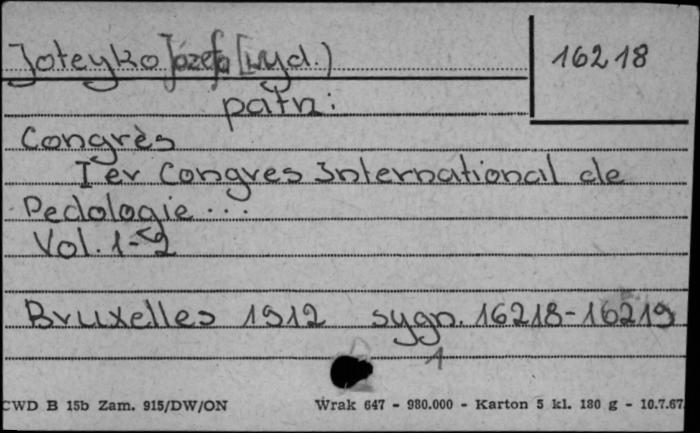 Joteyko Józefa [wyd.)
16218
patrz:
Congrès
Ier Congres International de
Pedologie ...
Vol. 1-2
Bruxelles 1912 sygn. 16218-16219
1
CWD B 15b Zam. 915/DW/ON Wrak 647 - 980.000 - Karton 5 kl. 180 g - 10.7.67